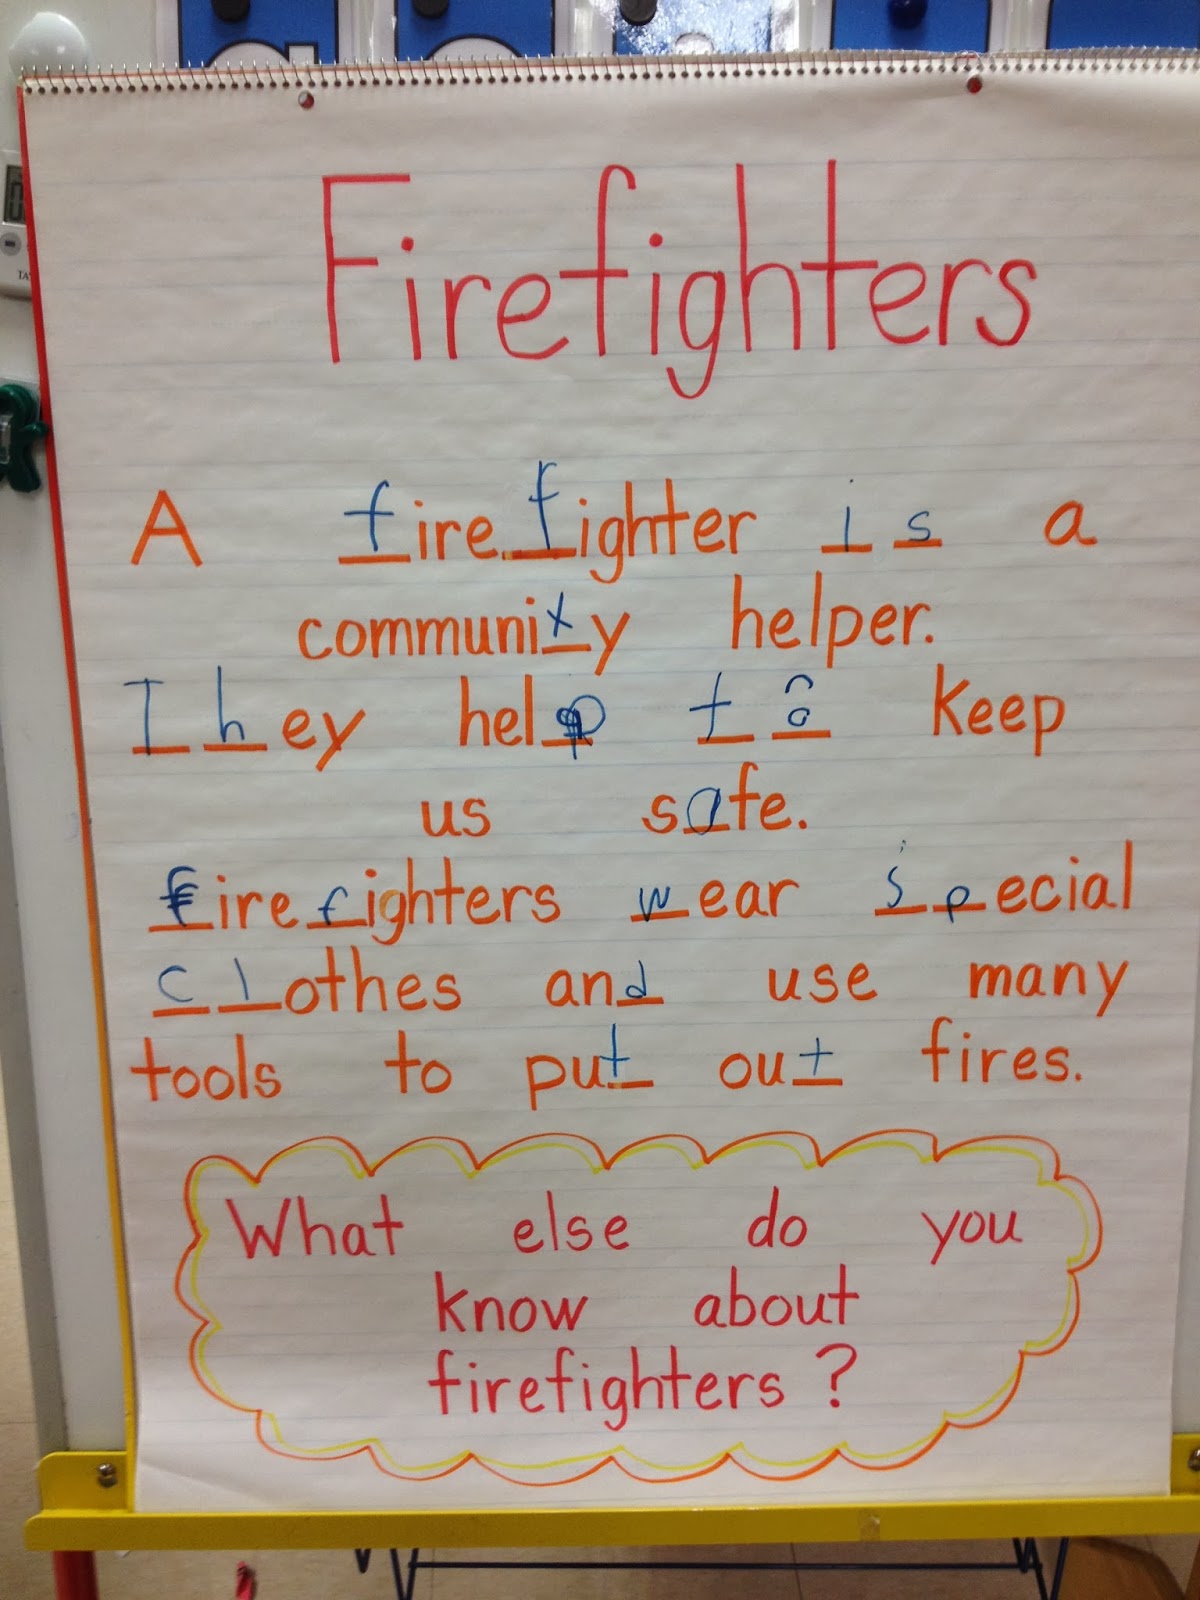 Firefighters
A firefighter is a
community helper.
They help to keep
us safe.
firefighters wear special
clothes and use many
tools to put out fires.
What else do you
know about
firefighters?